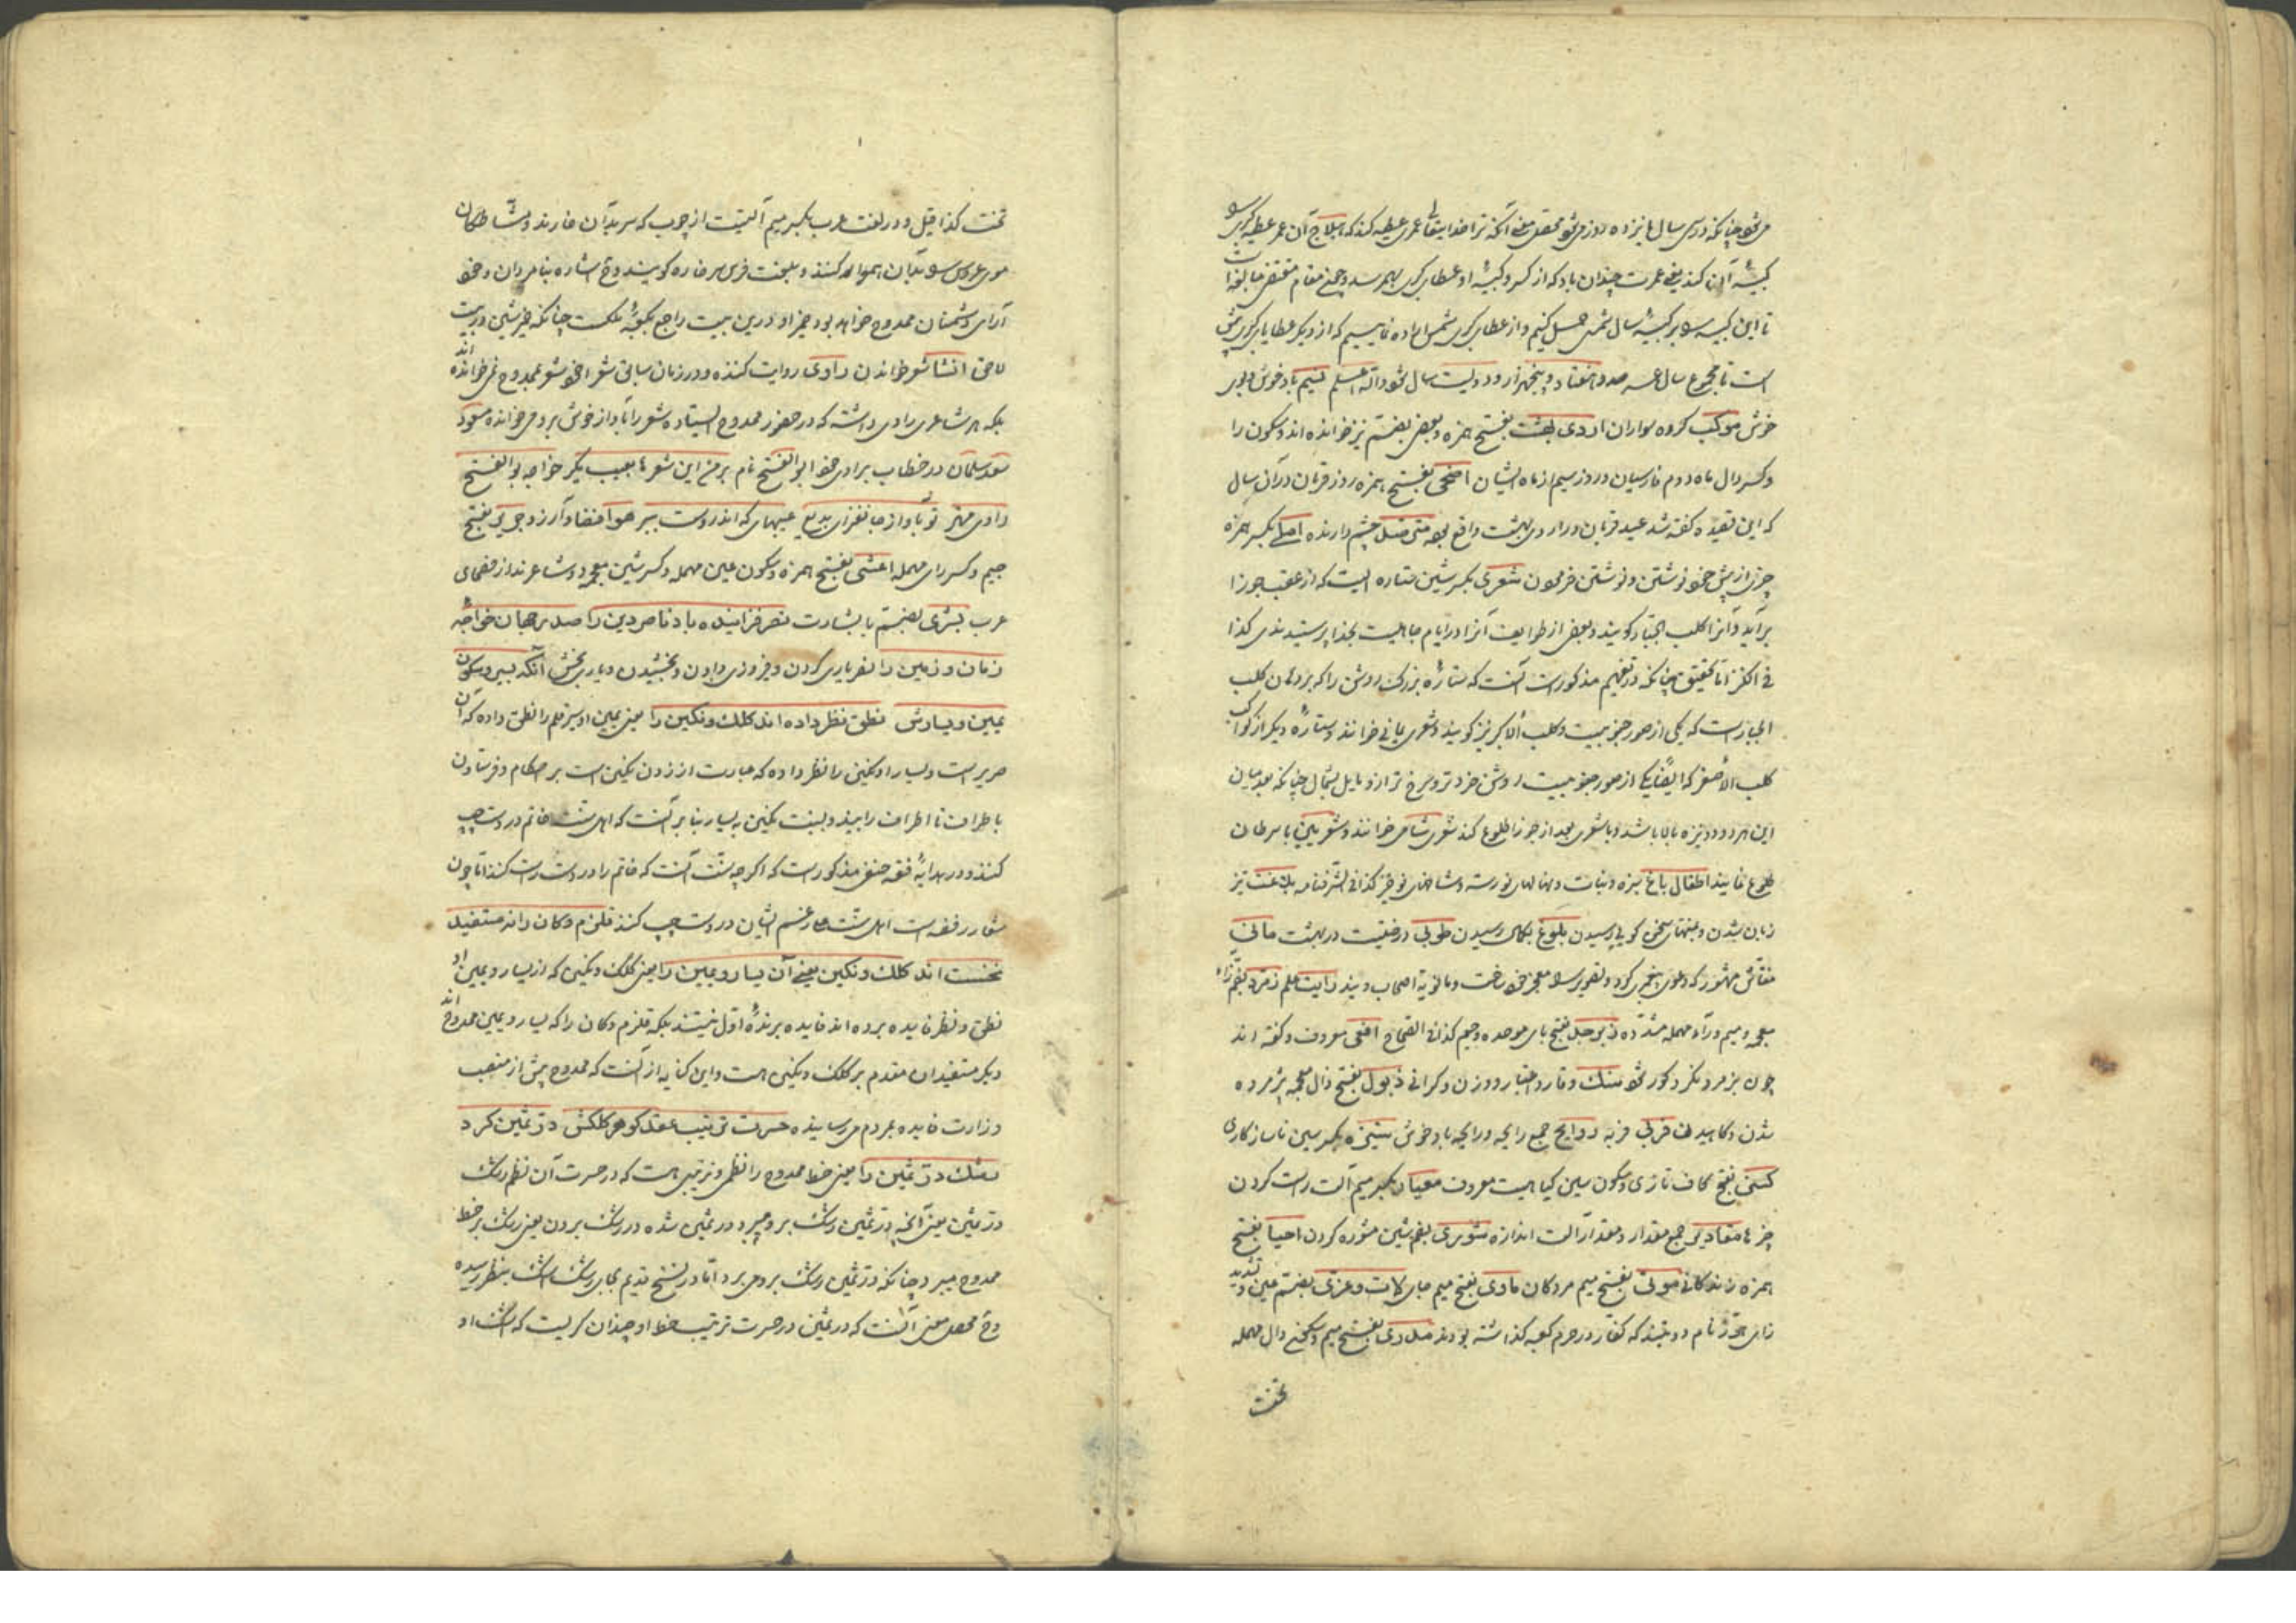 می‌شود چنانکه در سی سال یازده روز می‌شود محصل معنی آنکه ترا خدا تعالی عمری عطیه کند که هیلاج آن عمر عطیه کبری
کبیسه آن کند یعنی عمرت چندان باد که از کسر و کبیسه او عطای کبری بهم رسد و چون مقام مقتضی مبالغه است
تا این کبیسه را بر کبیسه سال شمسی حمل کنیم و از عطای کبری شمس اراده نماییم که از دیگر عطایای کبری بیش
است تا مجموع سال عمر صد و هفتاد و پنجهزار و دویست سال شود والله اعلم نسیم باد خوش و بوی
خوش موکب گروه سواران اردی بهشت بفتح همزه و بعضی بضم نیز خوانده‌اند و سکون را
و کسر دال ماه دوم فارسیان و روز سیم از ماه ایشان اضحی بفتح همزه روز قربان در آن سال
که این قصیده گفته شد عید قربان در اردی بهشت واقع بود مثل چشم دارنده املی بکسر همزه
چیزی از پیش خود نوشتن و نوشتن فرمودن شعری بکسر شین ستاره ایست که از عقب جوزا
برآید و آنرا کلب الجبار گویند و بعضی از طوایف آنرا در ایام جاهلیت بخدا پرستیدندی کذا
فی الکنز اما تحقیق چنانکه در تفهیم مذکور است آنست که ستاره بزرگ روشن را که بر دهان کلب
الجبار است که یکی از صور جنوبیست و کلب الاکبر نیز گویند و شعری یمانی خوانند و ستاره دیگر از کواکب
کلب الاصغر که ایضا یکی از صور جنوبیست روشن خردتر و سرخ‌تر از و مایل بشمال چنانکه بعد میان
این هر دو دو نیزه بالا باشد و با شعری بعد از جوزا طلوع کند شعری شامی خوانند و شعریین با سرطان
طلوع نمایند اطفال باغ سبزه و نبات و نهالهای نورسته و شاخهای نوخیز کذا فی الشرفنامه بلاغت تیز
زبان شدن و بمنتهای سخن گویی رسیدن بلوغ بکمال رسیدن طوبی درختیست در بهشت مانی
نقاش مشهور که دعوی پیغمبری کرد و تصویر را معجزه خود ساخت و مانویه اصحاب ویند رایت علم زمرد بضم زاء
معجمه و میم و راء مهمله مشدده زبرجد بفتح بای موحده و جیم کذا فی الصحاح افعی معروف و گفته‌اند
چون بزمرد نگرد کور شود سنگ وقار و اعتبار و وزن و گرانی ذبول بفتح ذال معجمه پژمرده
شدن و کاهیدن فربی فربه روایح جمع رایحه و رایحه باد خوش ستیزه بکسر سین ناسازگاری
کسنی بفتح کاف تازی و سکون سین گیاهیست معروف معیار بکسر میم آلت راست کردن
چیزها مقادیر جمع مقدار و مقدار آلت اندازه شوری بضم شین مشوره کردن احیا بفتح
همزه زندگانی موتی بفتح میم مردگان ماوی بفتح میم جای لات و عزی بضم عین و تشدید
زای هر دو نام دو بتند که کفار در حرم کعبه گذاشته بودند مدری بفتح میم و سکون دال مهمله
تخت
تخت کذا قیل و در لغت عرب بکسر میم آلتیست از چوب که سر بدان خارند و مشاطگان
موی عروس را بدان هموار کنند و بلغت فرس سرخاره گویند و ح اشاره بنامردان و خود
آرای دشمنان ممدوح خواهد بود ضمیر او درین بیت راجع بکف ملکست چنانکه ضمیر شین در بیت
لاحق انشا شعر خواندن راوی روایت کننده و در زمان سابق شعرا خود شعر بممدوح نمی‌خوانده‌اند
بلکه هر شاعری راوی داشته که در حضور ممدوح ایستاده شعر را بآواز خوش برو می‌خوانده مسعود
سعد سلمان در خطاب براوی خود ابوالفتح نام بر من این شعرها بعیب مگیر خواجه بوالفتح
راوی مهتر تو بآواز جانفزای بدیع عیبهای که اندروست ببر هوا فضا و آرزو جریر بفتح
جیم و کسر رای مهمله اعشی بفتح همزه و سکون عین مهمله و کسر شین معجمه دو شاعرند از فصحای
عرب بشری بضم با بشارت نصر فزاینده باد ناصر دین را صدر جهان خواجه
زمان و زمین را نصر یاری کردن و فیروزی دادن و بخشیدن و یاری بخش آنکه بسی و سکون
یمین و یسارش نطق نظر داده‌اند کلک و نگین را یعنی یمین او سر قلم را نطق داده که آن
صریر است و یسار او نگین را نظر داده که عبارت از زدن نگین است بر احکام و فرستادن
باطراف تا اطراف را بیند و نسبت نگین به یسار بنابر آنست که اهل تسنن خاتم در دست چپ
کنند و در هدایه فقه حنفی مذکور است که اگر چه سنت آنست که خاتم را در دست راست کنند اما چون
شعار رفضه است اهل سنت علی رغم ایشان در دست چپ کنند قلزم و کان را نه مستفید
نخست‌اند کلک و نگین یعنی آن یسار و یمین را یعنی کلک و نگین که از یسار و یمین او
نطق و نظر فایده برده‌اند فایده برنده اول نیستند بلکه قلزم و کان را که یسار و یمین ممدوح‌اند
دیگر مستفیدان مقدم بر کلک و نگین هست و این کنایه از آنست که ممدوح پیش از منصب
وزارت فایده بمردم می‌رسانیده حسرت ترتیب عقد گوهر کلکش در ثمین کرد
رشک در ثمین را یعنی خط ممدوح را نظمی و ترتیبی هست که در حسرت آن نظم رشک
در ثمین یعنی آنچه در ثمین رشک برو میبرد در ثمین شده در رشک بردن یعنی رشک بر خط
ممدوح میبرد چنانکه در ثمین رشک برو می‌برد اما در نسخ قدیم بجای رشک اشک بنظر رسیده
و ح محصل معنی آنست که در ثمین در حسرت ترتیب خط او چندان گریست که اشک او